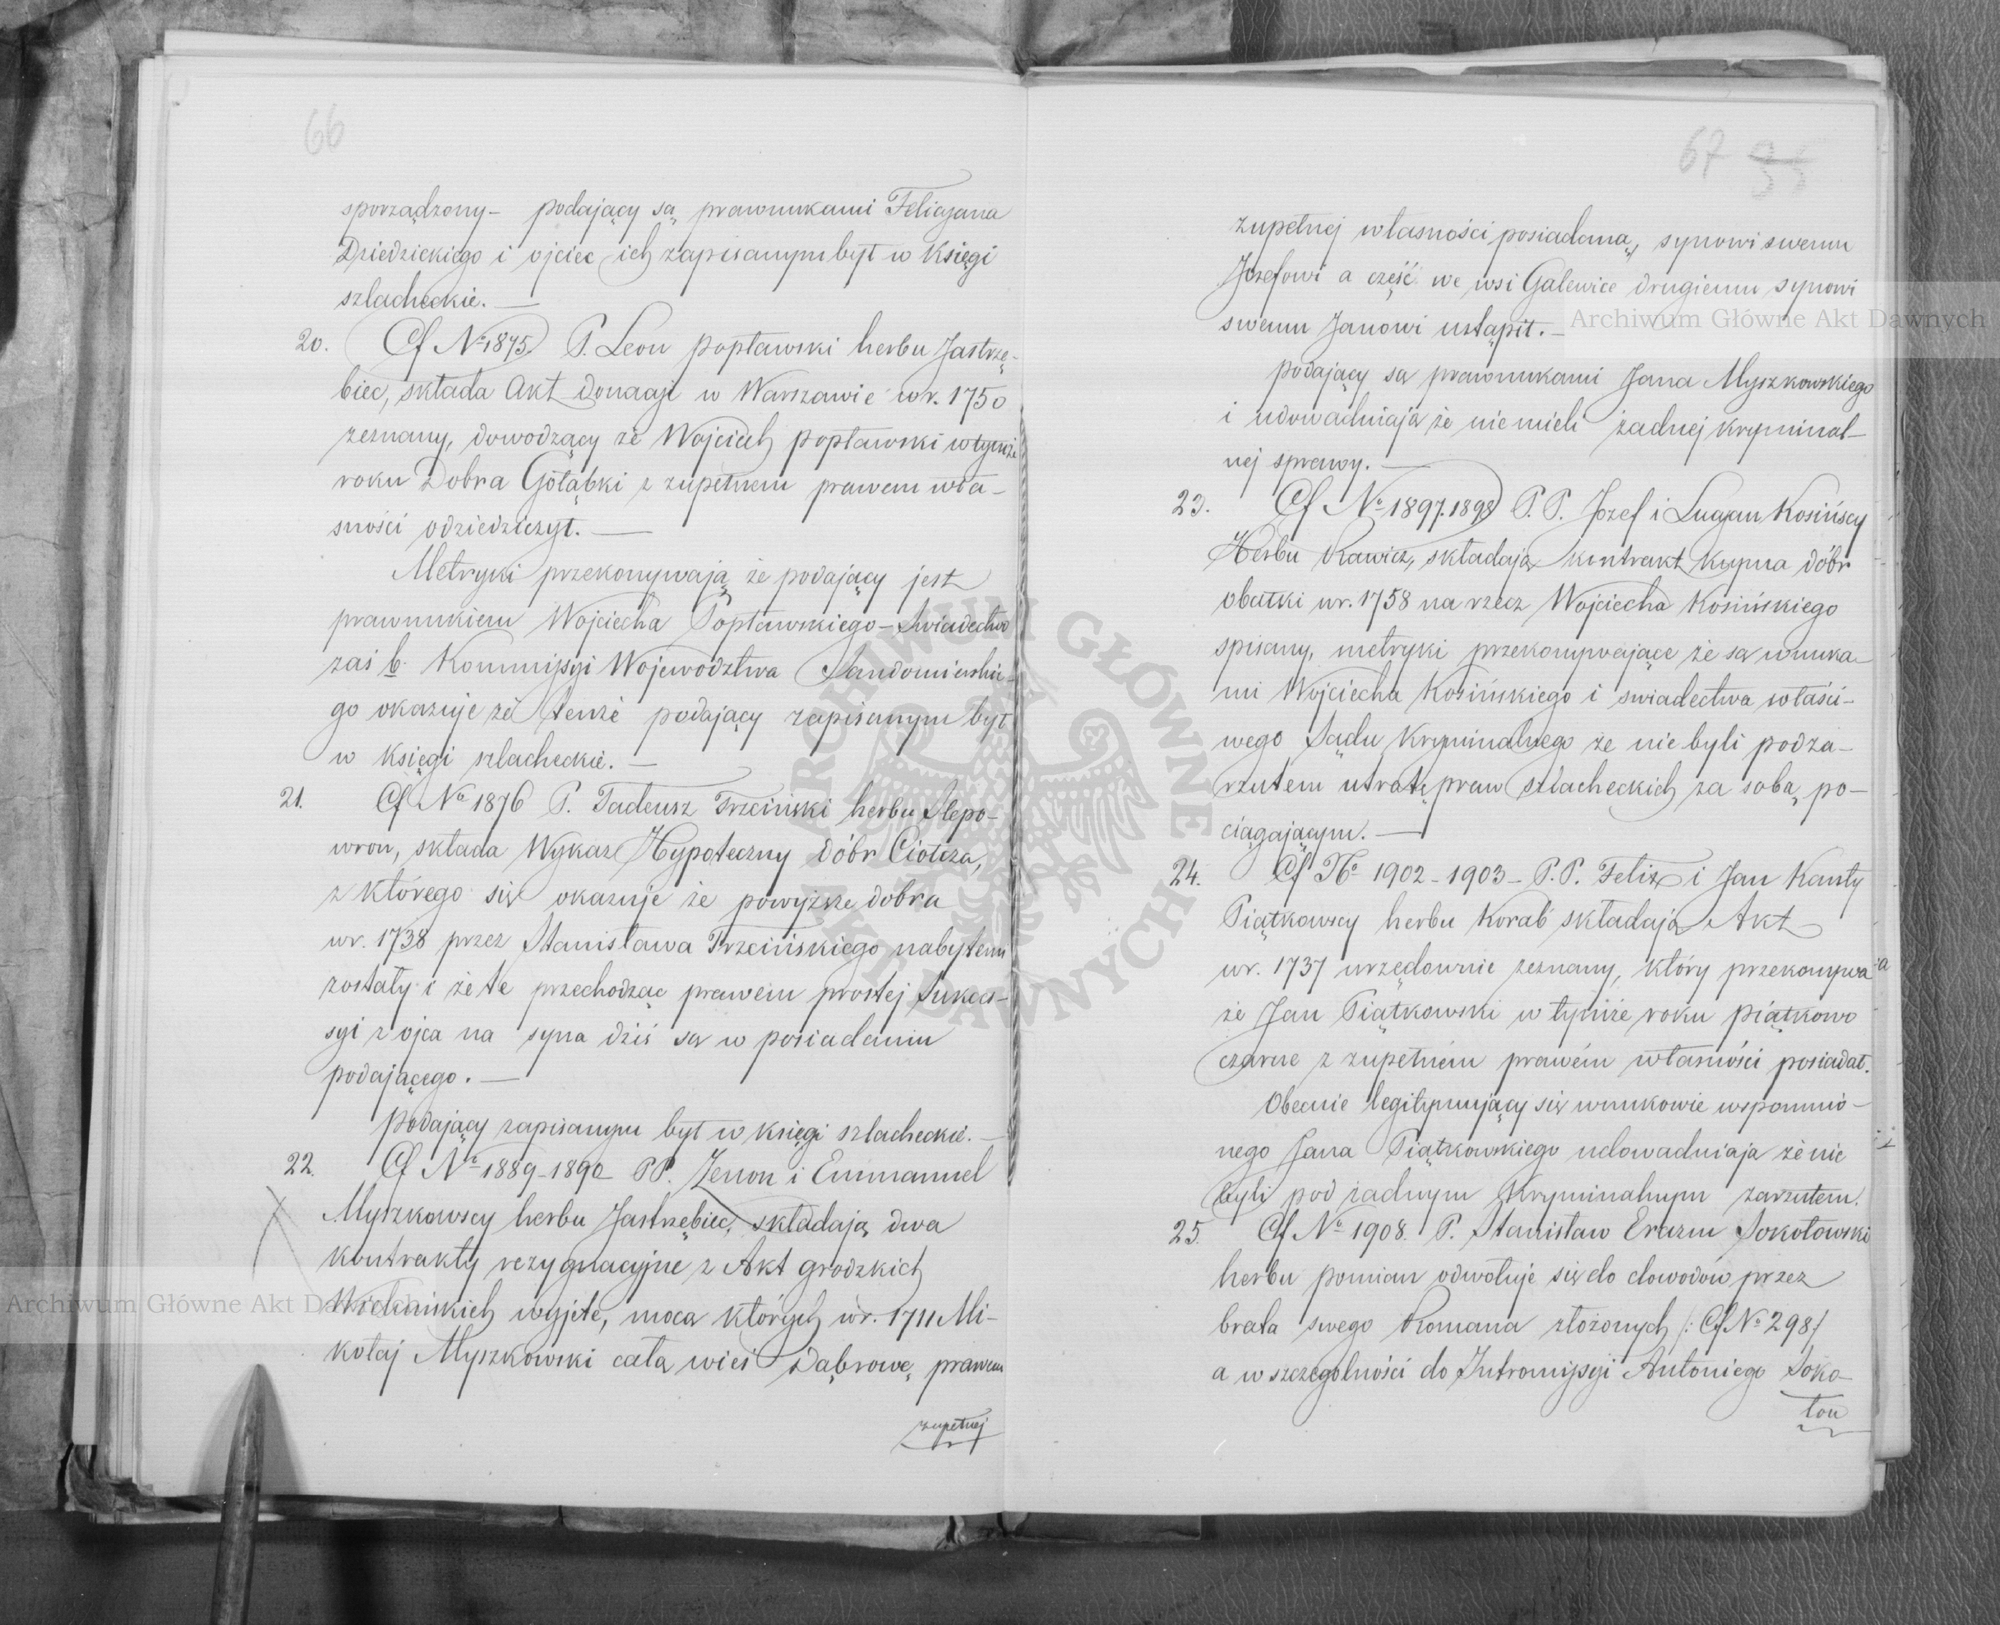 66
sporządzony – podający są prawnukami Felicyana
Dziedzickiego i ojciec ich zapisanym był w Księgi
szlacheckie. —
20. Cf Nº 1875. P. Leon Popławski herbu Jastrzę-
biec, składa Akt donacyi w Warszawie w r. 1750
zeznany, dowodzący że Wojciech Popławski w tymże
roku Dobra Gołąbki z zupełnem prawem wła-
sności odziedziczył. —
Metryki przekonywają że podający jest
prawnukiem Wojciecha Popławskiego – Swiadectwo
zaś b. Kommissyi Województwa Sandomierskie-
go okazuje że tenże podający zapisanym był
w Księgi szlacheckie. —
21. Cf Nº 1876 P. Tadeusz Trzciński herbu Slepo-
wron, składa Wykaz Hypoteczny dóbr Ciołcza,
z którego się okazuje że powyższe dobra
w r. 1738 przez Stanisława Trzcińskiego nabytemi
zostały i że te przechodząc prawem prostej Sukces-
syi z ojca na syna dziś są w posiadaniu
podającego. —
Podający zapisanym był w Księgi szlacheckie. —
22. Cf Nº 1889 – 1890 PP. Zenon i Emmanuel
Myszkowscy herbu Jastrzębiec, składają dwa
kontrakty rezygnacyjne z Akt grodzkich
Wieluńskich wyjęte, mocą których w r. 1711 Mi-
kołaj Myszkowski całą wieś Dąbrowę prawem
zupełnej
67 35
zupełnej własności posiadaną, synowi swemu
Józefowi a część we wsi Galewice drugiemu synowi
swemu Janowi ustąpił. —
Podający są prawnukami Jana Myszkowskiego
i udowadniają że nie mieli żadnej kryminal-
nej sprawy. —
23. Cf Nº 1897.1898 P. P. Józef i Lucyan Kosińscy
Herbu Rawicz, składają kontrakt kupna dóbr
Obałki w r. 1758 na rzecz Wojciecha Kosińskiego
spisany, metryki przekonywające że są wnuka-
mi Wojciecha Kosińskiego i swiadectwa właści-
wego Sądu Kryminalnego że nie byli pod za-
rzutem utratę praw szlacheckich za sobą po-
ciągającym. —
24. Cf Nº 1902 – 1903 – P. P. Felix i Jan Kanty
Piątkowscy herbu Korab składają Akt
w r. 1737 urzędownie zeznany, który przekonywa
że Jan Piątkowski w tymże roku Piątkowo
czarne z zupełném prawém własności posiadał.
Obecnie legitymujący się wnukowie wspomnio-
nego Jana Piątkowskiego udowadniają że nie
byli pod żadnym Kryminalnym zarzutem.
25. Cf Nº 1908. P. Stanisław Erazm Sokołowski
herbu Pomian odwołuje się do dowodów przez
brata swego Romana złożonych /: Cf Nº 298 /
a w szczególności do Intromissyi Antoniego Soko-
łow
Archiwum Główne Akt Dawnych
Archiwum Główne Akt Dawnych
ARCHIWUM GŁÓWNE AKT DAWNYCH